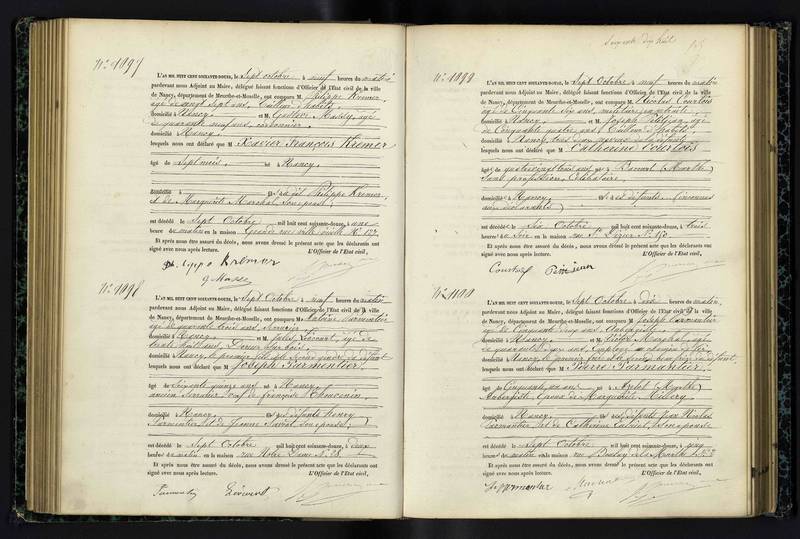 N° 1097
L'AN MIL HUIT CENT SOIXANTE-DOUZE, le Sept octobre à neuf heures du matin
pardevant nous Adjoint au Maire, délégué faisant fonctions d'Officier de l'Etat civil de la ville
de Nancy, département de Meurthe-et-Moselle, ont comparu M. Philippe Kremer
âgé de vingt sept ans, tailleur d'habits,
domicilié à Nancy et M. Gustave âgé
de quarante neuf ans, cordonnier,
domicilié à Nancy
lesquels nous ont déclaré que M Xavier François Kremer
âgé de Sept mois né à Nancy
domicilié à Philippe Kremer
et de Marguerite Marchal, son épouse,
est décédé le Sept Octobre mil huit cent soixante-douze, à une
heure du matin en la maison Grande rue ville vieille N° 127.
Et après nous être assuré du décès, nous avons dressé le présent acte que les déclarants ont
signé avec nous après lecture. L'Officier de l'Etat civil,
Kremer
N° 1098
L'AN MIL HUIT CENT SOIXANTE-DOUZE, le Sept Octobre à neuf heures du matin
pardevant nous Adjoint au Maire, délégué faisant fonctions d'Officier de l'Etat civil de la ville
de Nancy, département de Meurthe-et-Moselle, ont comparu M. Antoine Parmentier
âgé de quarante trois ans,
domicilié à Nancy et M. Jules âgé de
trente huit ans,
domicilié à Nancy, le premier fils et le second gendre du défunt
lesquels nous ont déclaré que M Joseph Parmentier
âgé de Soixante quinze ans né à Nancy
ancien Serrurier, veuf de françoise Thouvenin
domicilié à Nancy défunts henry
Parmentier et de Jeanne son épouse,
est décédé le Sept Octobre mil huit cent soixante-douze, à deux
heures du matin en la maison rue Notre Dame N° 28.
Et après nous être assuré du décès, nous avons dressé le présent acte que les déclarants ont
signé avec nous après lecture. L'Officier de l'Etat civil,
Soixante dix huit
N° 1099
L'AN MIL HUIT CENT SOIXANTE-DOUZE, le Sept Octobre à neuf heures du matin
pardevant nous Adjoint au Maire, délégué faisant fonctions d'Officier de l'Etat civil de la ville
de Nancy, département de Meurthe-et-Moselle, ont comparu M. Nicolas Courtois
âgé de Cinquante six ans, militaire en retraite
domicilié à Nancy et M. Joseph âgé
de Cinquante quatre ans, Tailleur d'habits,
domicilié à Nancy
lesquels nous ont déclaré que M Catherine Courtois
âgée de quatre vingt trois ans née à (Meurthe)
Sans profession, Célibataire,
domiciliée à Nancy défunts inconnus
aux déclarants
est décédée le Six Octobre mil huit cent soixante-douze, à trois
heures du Soir en la maison rue St Dizier N° 150
Et après nous être assuré du décès, nous avons dressé le présent acte que les déclarants ont
signé avec nous après lecture. L'Officier de l'Etat civil,
Courtois
N° 1100
L'AN MIL HUIT CENT SOIXANTE-DOUZE, le Sept Octobre à dix heures du matin
pardevant nous Adjoint au Maire, délégué faisant fonctions d'Officier de l'Etat civil de la ville
de Nancy, département de Meurthe-et-Moselle, ont comparu M. Joseph Parmentier
âgé de Cinquante ans, Aubergiste
domicilié à Nancy et M. Victor âgé
de quarante ans, Employé au chemin de fer
domicilié à Nancy, le premier frère et le second beau frère du défunt,
lesquels nous ont déclaré que M Pierre Parmentier
âgé de Cinquante un ans né à (Meurthe)
Aubergiste, Epoux de Marguerite
domicilié à Nancy défunts Jean Nicolas
Parmentier et de Catherine son épouse
est décédé le Sept Octobre mil huit cent soixante-douze, à cinq
heures du matin en la maison rue
Et après nous être assuré du décès, nous avons dressé le présent acte que les déclarants ont
signé avec nous après lecture. L'Officier de l'Etat civil,